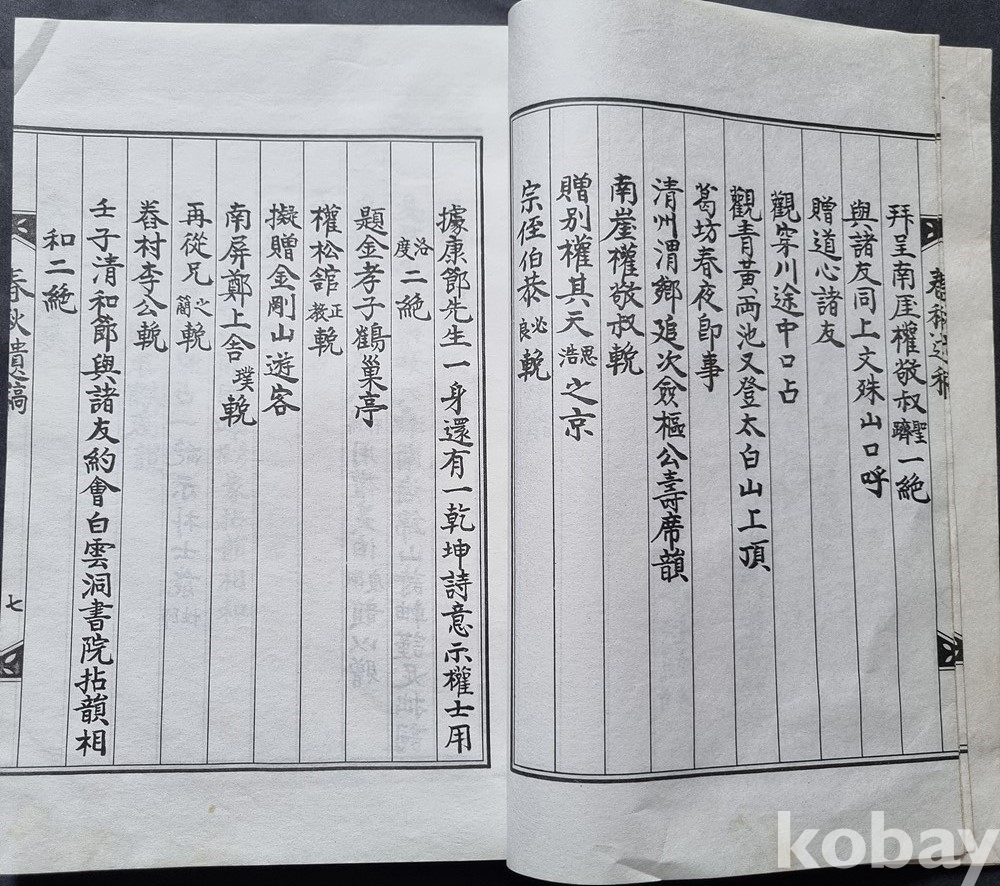 拜呈南厓權敬叔聖躋一絶
與諸友同上文殊山口呼
贈道心諸友
觀穿川途中口占
觀青黃兩池又登太白山上頂
葛坊春夜卽事
清州渭鄕追次僉樞公壽席韻
南崖權敬叔輓
贈別權其天思浩之京
宗侄伯恭必良輓
據康節先生一身還有一乾坤詩意示權士用
洛度二絶
題金孝子鶴巢亭
權松舘正敎輓
擬贈金剛山遊客
南屏鄭上舍璞輓
再從兄之簡輓
村李公輓
壬子清和節與諸友約會白雲洞書院拈韻相
和二絶
春秋遺稿
七
kobay